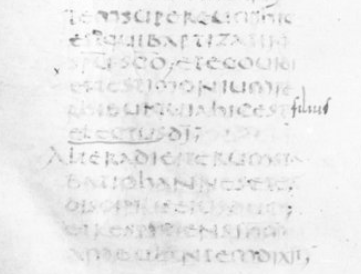 TEMSUPEREUMHIC
ESTQUIBAPTIZATIN
SPUSCO, ETEGOUIDI
ETTESTIMONIUMPE
RHIBUIQUIAHICEST filius
ELECTUSDI;
ALTERADIEITERUMSTA
BATIOHANNESETEX
DISCIPULISEIUSDUO;
ETRESPICIENSIHM
AMBULANTEMDIXIT;